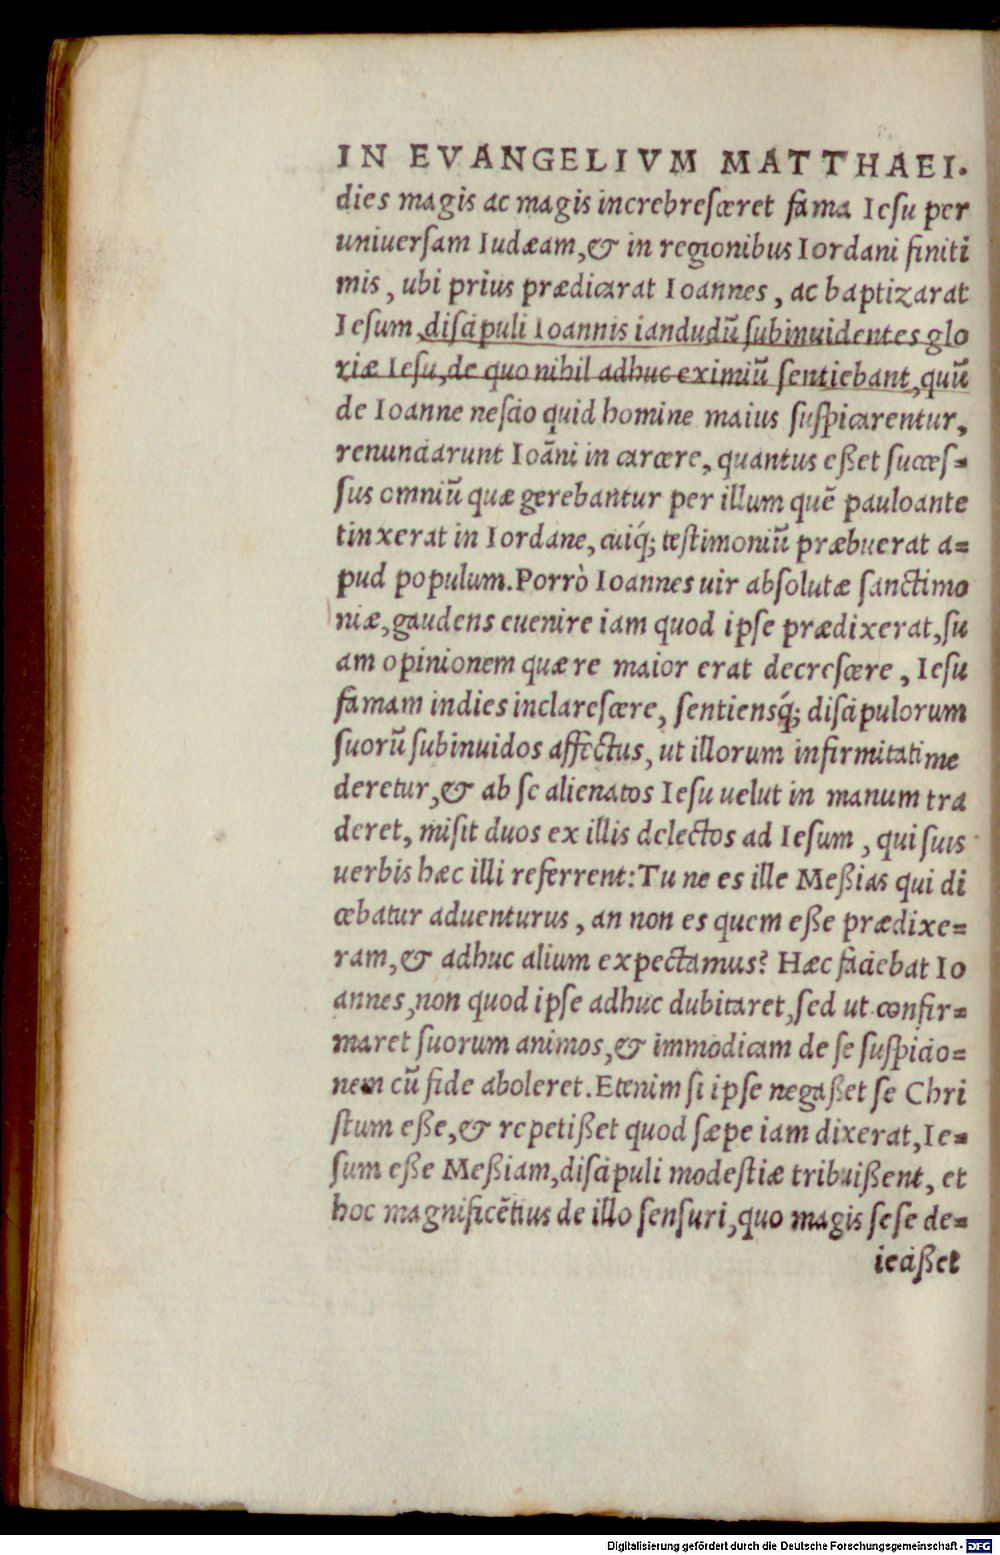 IN EVANGELIVM MATTHAEI.
dies magis ac magis increbresceret fama Iesu per
uniuersam Iudæam,& in regionibus Iordani finiti
mis, ubi prius prædicarat Ioannes, ac baptizarat
Iesum,discipuli Ioannis iandudũ subinuidentes glo
riæ Iesu,de quo nihil adhuc eximiũ sentiebant,quũ
de Ioanne nescio quid homine maius suspicarentur,
renunciarunt Ioãni in carcere, quantus eßet succes=
sus omniũ quæ gerebantur per illum quẽ pauloante
tinxerat in Iordane, cuiq́; testimoniũ præbuerat a=
pud populum.Porrò Ioannes uir absolutæ sanctimo
niæ,gaudens euenire iam quod ipse prædixerat,su
am opinionem quæ re maior erat decrescere, Iesu
famam indies inclarescere, sentiensq́; discipulorum
suorũ subinuidos affectus, ut illorum infirmitati me
deretur,& ab se alienatos Iesu uelut in manum tra
deret, misit duos ex illis delectos ad Iesum, qui suis
uerbis hæc illi referrent:Tu ne es ille Meßias qui di
cebatur aduenturus, an non es quem eße prædixe=
ram,& adhuc alium expectamus? Hæc faciebat Io
annes,non quod ipse adhuc dubitaret,sed ut confir=
maret suorum animos,& immodicam de se suspicio=
nem cũ fide aboleret.Etenim si ipse negaßet se Chri
stum eße,& repetißet quod sæpe iam dixerat,Ie=
sum eße Meßiam,discipuli modestiæ tribuißent, et
hoc magnificẽtius de illo sensuri,quo magis sese de=
iecißet
Digitalisierung gefördert durch die Deutsche Forschungsgemeinschaft - DFG